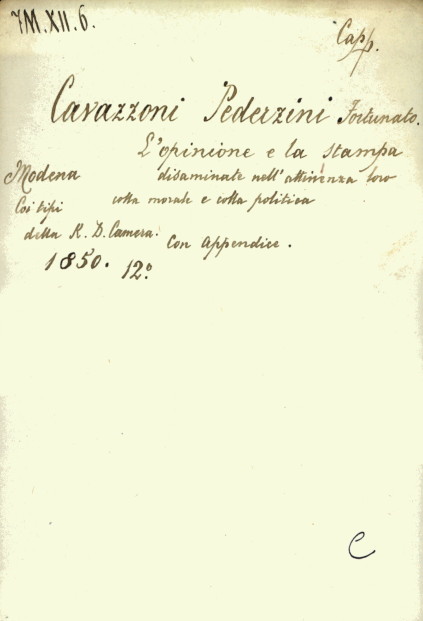 7M.XII.6.
Capp.
Cavazzoni Pederzini Fortunato.
L'opinione e la stampa
Modena disaminate nell'attinenza loro
Coi tipi colla morale e colla politica
della R. D. Camera. Con appendice.
1850. 12°
C